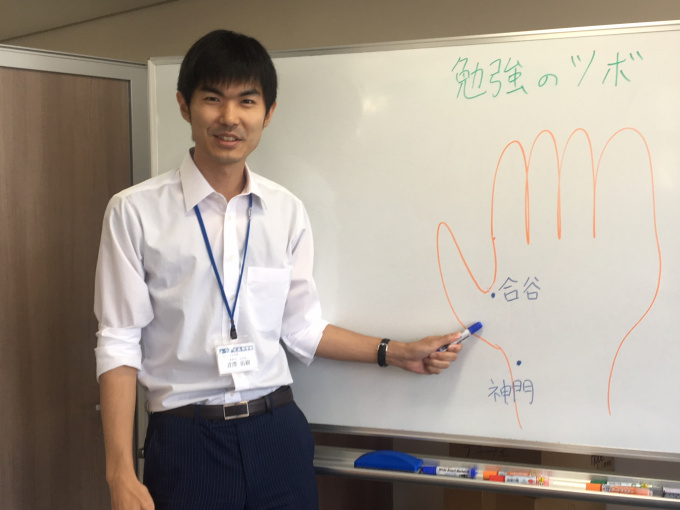 勉強のツボ
合谷
神門